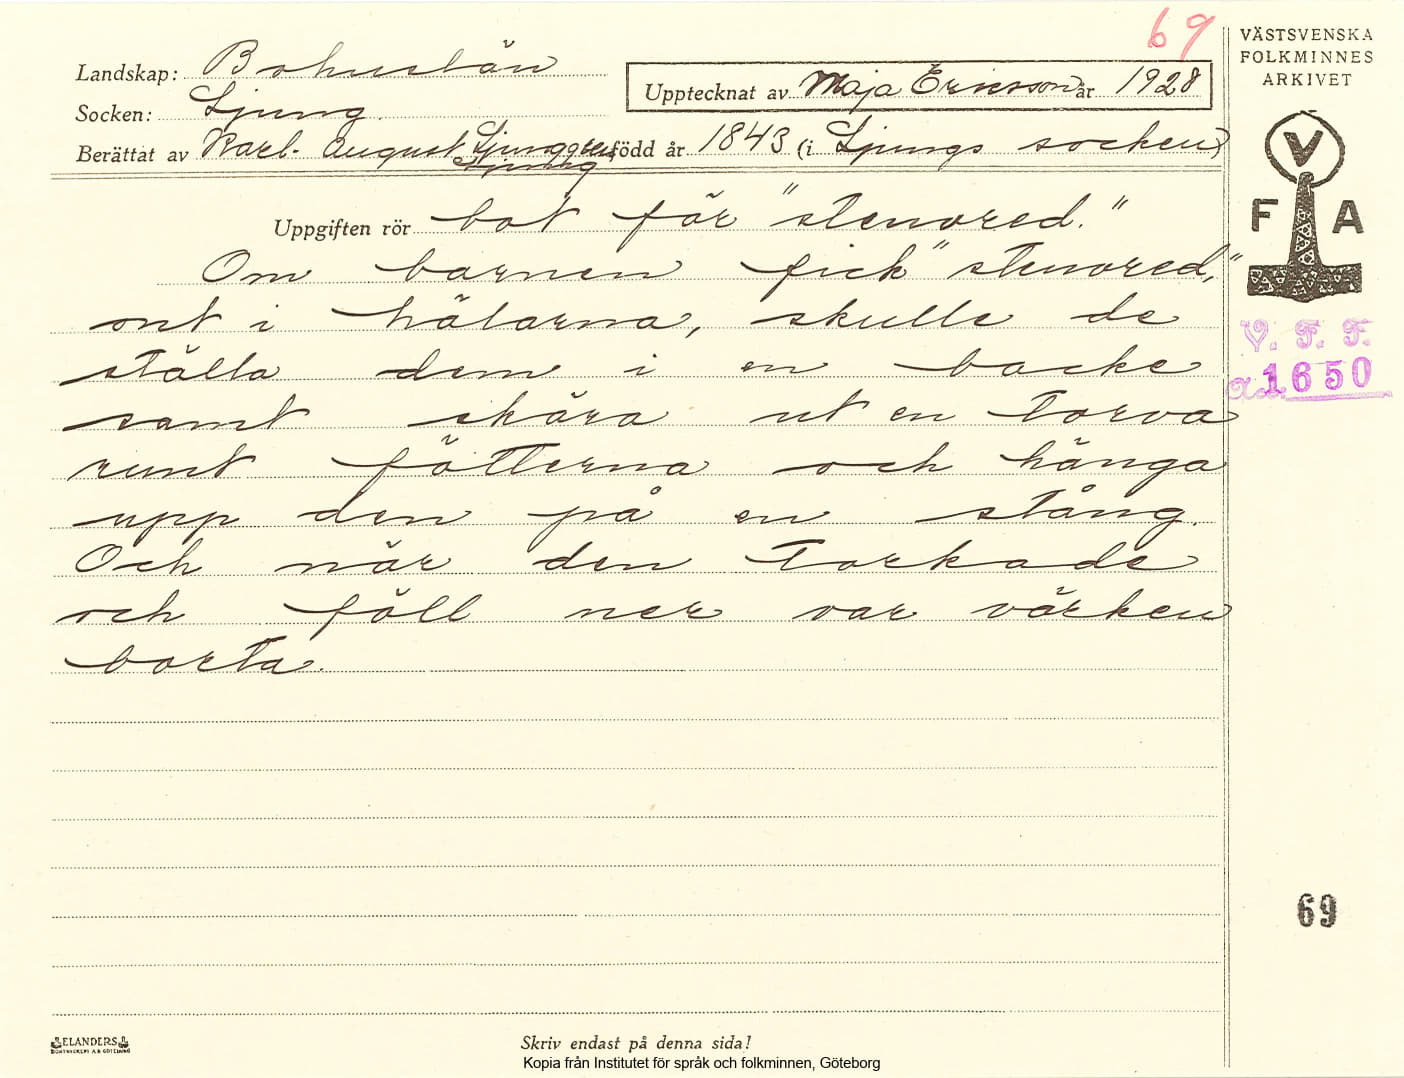 69
VÄSTSVENSKA
FOLKMINNES
ARKIVET
Landskap: Bohuslän
Upptecknat av Maja Ericsson år 1928
Socken: Ljung
Berättat av Karl August Ljunggren, född år 1843 (i Ljungs socken)
Ljung
V
F A
Uppgiften rör bot för "stenvred."
Om barnen fick "stenvred,"
ont i hälarna, skulle de
ställa dem i en backe
samt skära ut en torva
runt fötterna och hänga
upp den på en stång.
Och när den torkade
och föll ner var värken
borta.
V. F. F.
1650
69
ELANDERS
BOKTRYCKERI A.B. GÖTEBORG
Skriv endast på denna sida!
Kopia från Institutet för språk och folkminnen, Göteborg